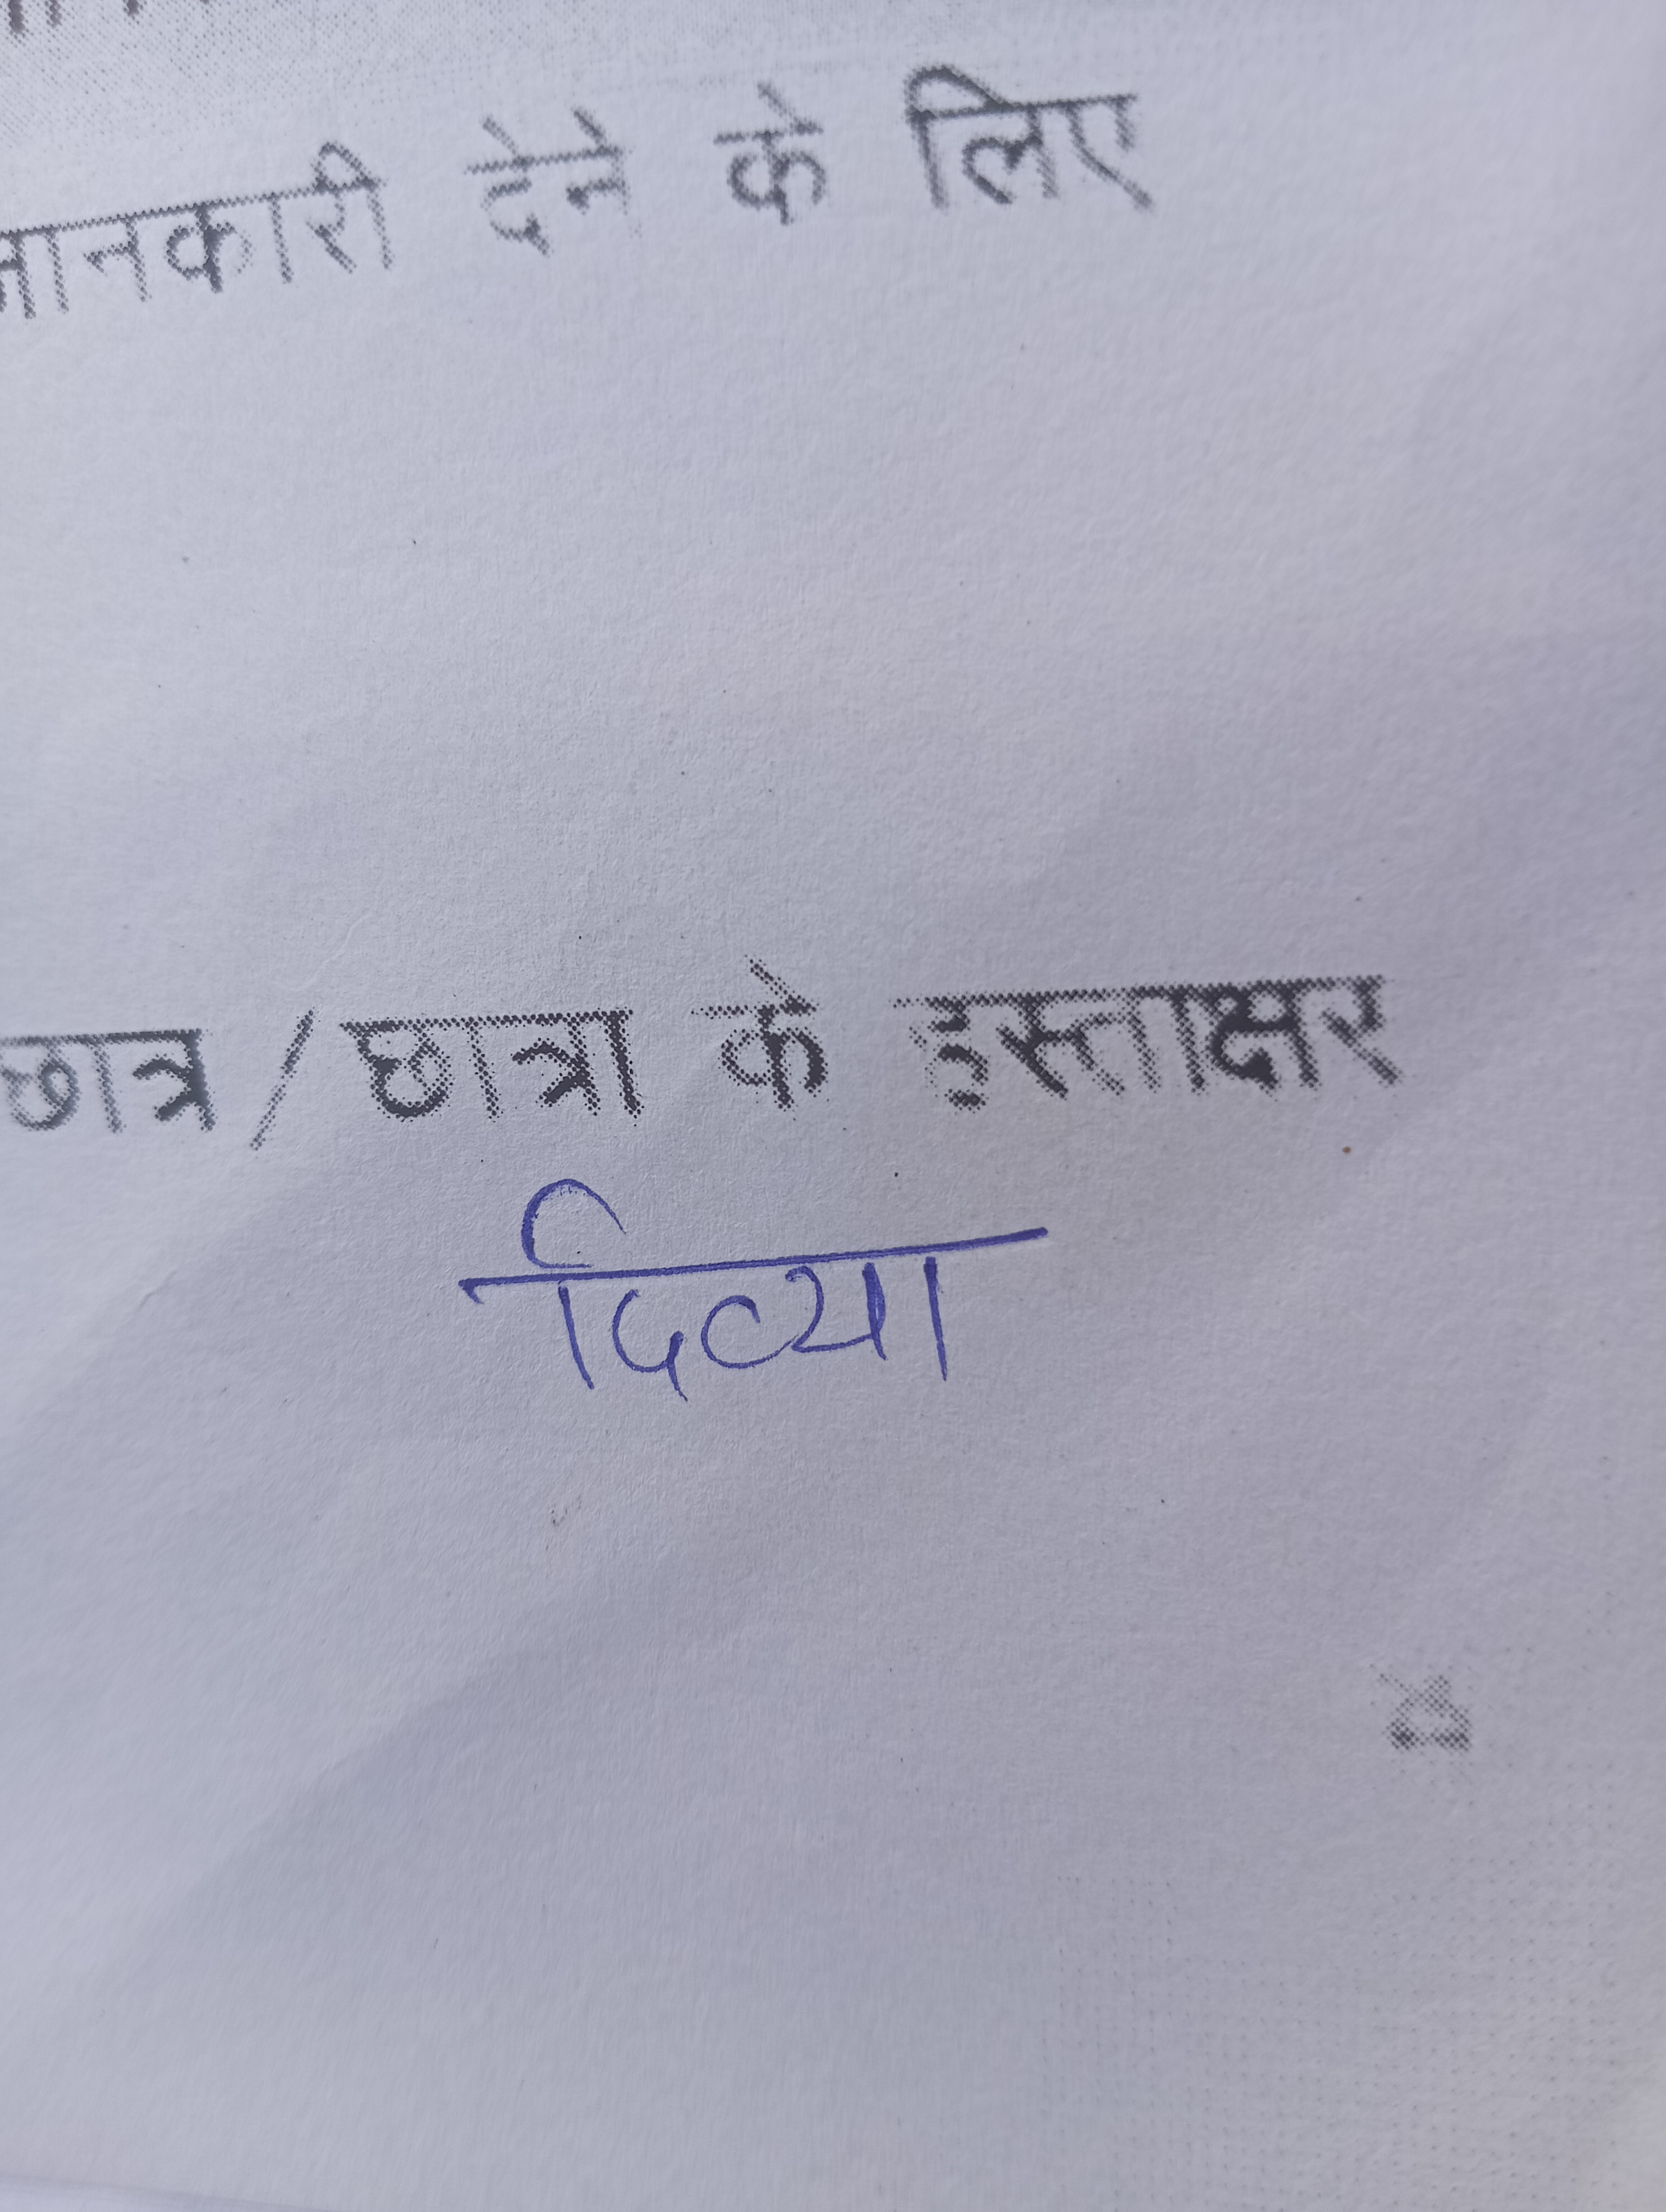 जानकारी देने के लिए
छात्र / छात्रा के हस्ताक्षर
दिव्या